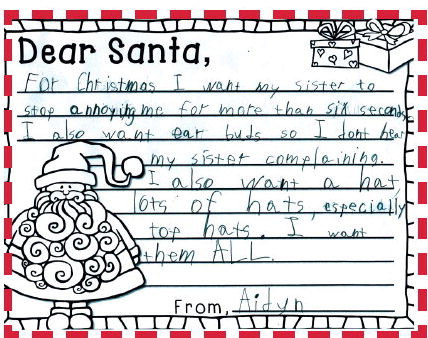 Dear Santa,
For Christmas I want my sister to
stop annoying me for more than six seconds.
I also want ear buds so I dont hear
my sister complaining.
I also want a hat,
lots of hats, especially
top hats. I want
them ALL.
From, Aidyn